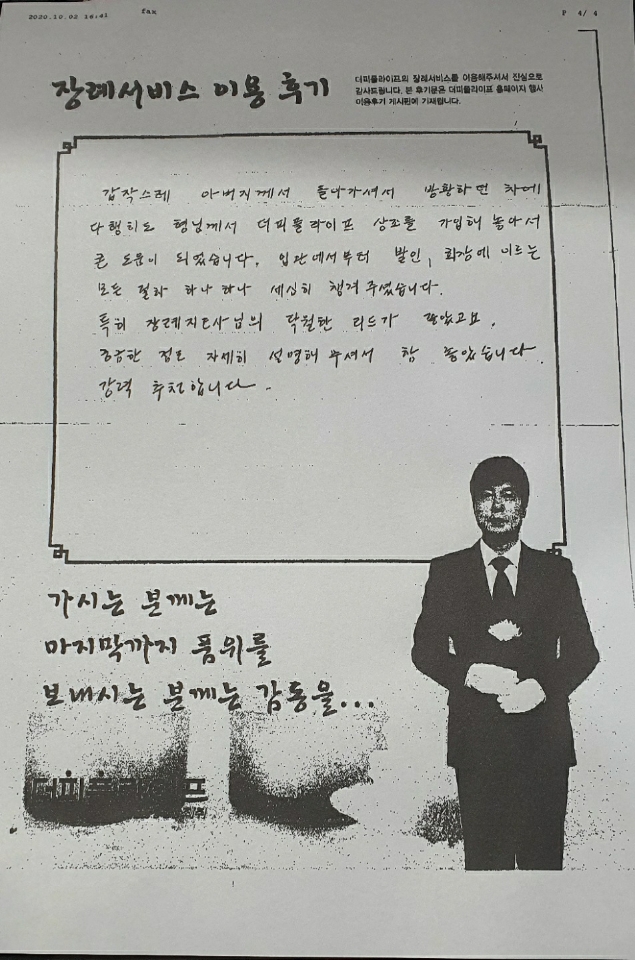 2020.10.02 16:41 fax P 4/ 4
장례서비스 이용 후기
더피플라이프의 장례서비스를 이용해주셔서 진심으로
감사드립니다. 본 후기문은 더피플라이프 홈페이지 행사
이용후기 게시판에 기재됩니다.
갑작스레 아버지께서 돌아가셔서 방황하던 차에
다행히도 형님께서 더피플라이프 상조를 가입해 놓아서
큰 도움이 되었습니다. 입관에서부터 발인, 화장에 이르는
모든 절차 하나 하나 세심히 챙겨 주셨습니다.
특히 장례지도사님의 탁월한 리드가 좋았고요.
궁금한 점도 자세히 설명해 주셔서 참 좋았습니다
강력 추천합니다.
가시는 분께는
마지막까지 품위를
보내시는 분께는 감동을...
더피플라이프